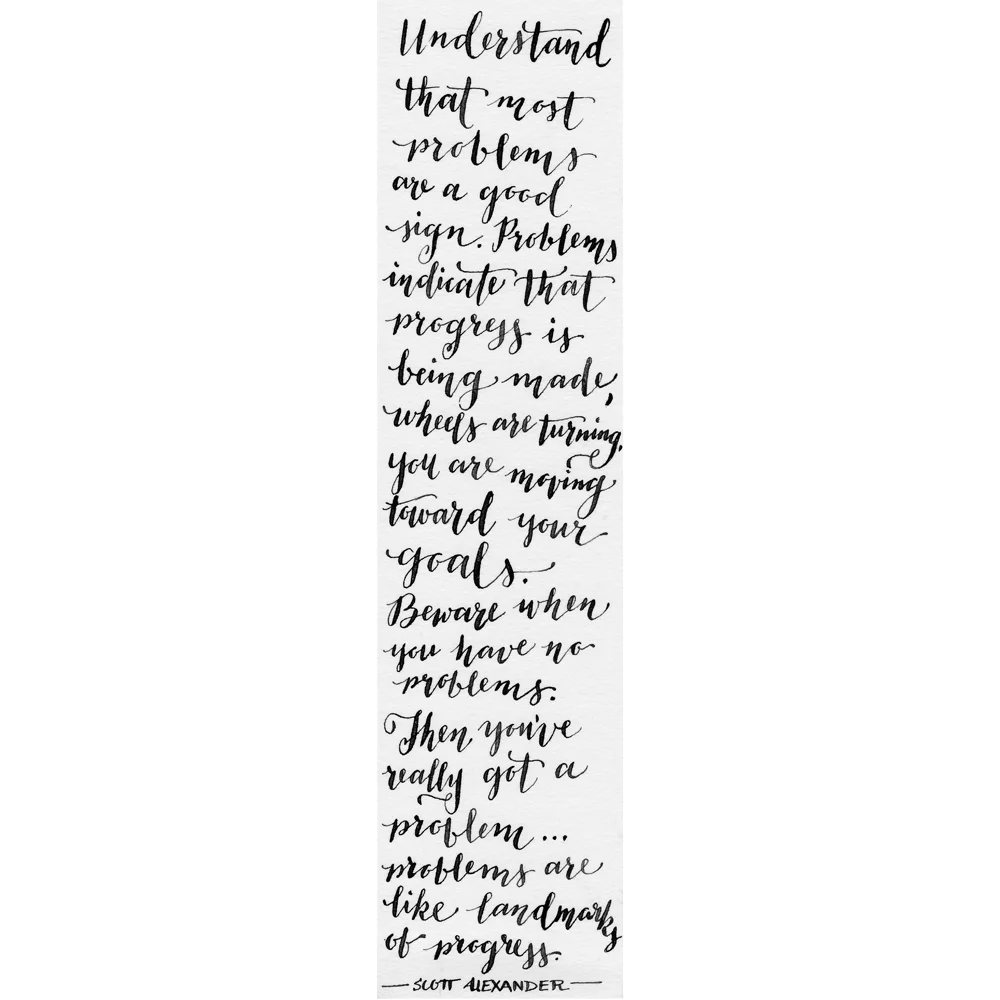 Understand
that most
problems
are a good
sign. Problems
indicate that
progress is
being made,
wheels are turning,
you are moving
toward your
goals.
Beware when
you have no
problems.
Then you've
really got a
problem...
problems are
like landmarks
of progress.
— SCOTT ALEXANDER —